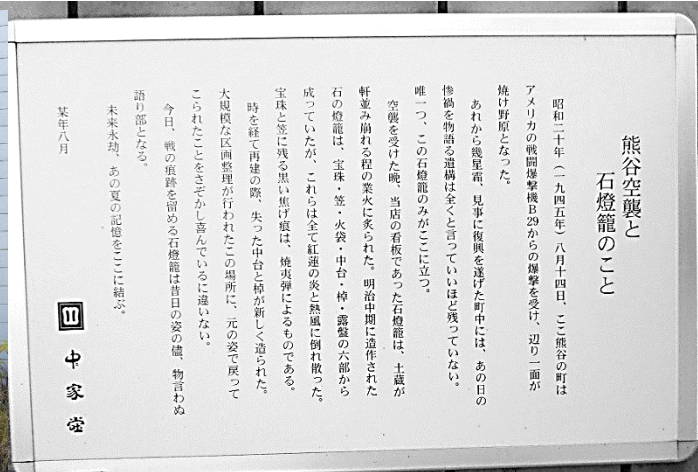 熊谷空襲と
石燈籠のこと
昭和二十年（一九四五年）八月十四日、ここ熊谷の町は
アメリカの戦闘爆撃機B29からの爆撃を受け、辺り一面が
焼け野原となった。
あれから幾星霜、見事に復興を遂げた町中には、あの日の
惨禍を物語る遺構は全くと言っていいほど残っていない。
唯一つ、この石燈籠のみがここに立つ。
空襲を受けた晩、当店の看板であった石燈籠は、土蔵が
軒並み崩れる程の業火に炙られた。明治中期に造作された
石の燈籠は、宝珠・笠・火袋・中台・棹・露盤の六部から
成っていたが、これらは全て紅蓮の炎と熱風に倒れ散った。
宝珠と笠に残る黒い焦げ痕は、焼夷弾によるものである。
時を経て再建の際、失った中台と棹が新しく造られた。
大規模な区画整理が行われたこの場所に、元の姿で戻って
こられたことをさぞかし喜んでいるに違いない。
今日、戦の痕跡を留める石燈籠は昔日の姿の儘、物言わぬ
語り部となる。
未来永劫、あの夏の記憶をここに結ぶ。
某年八月
中家堂